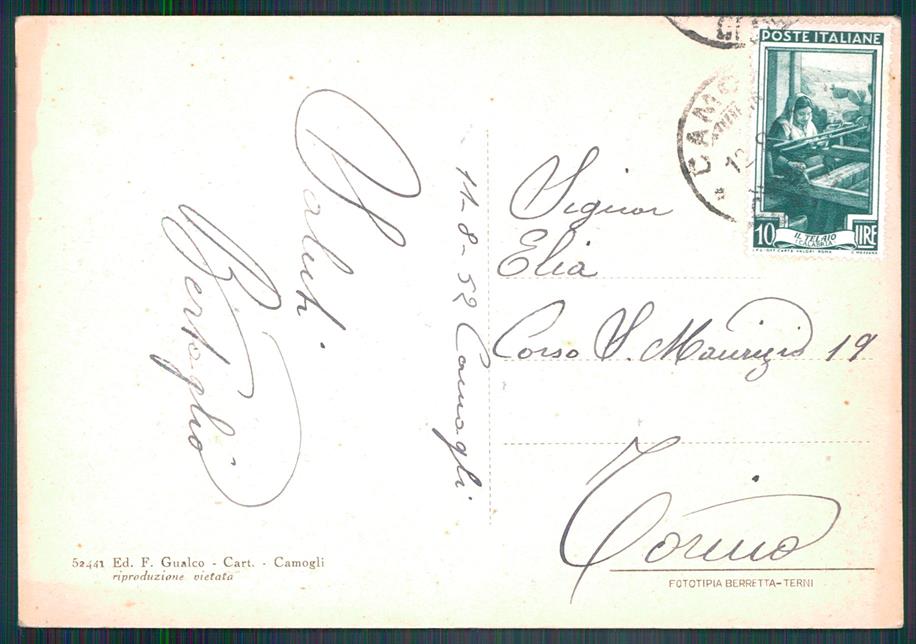 Saluti
Bertoglio
11-8-52 Camogli
Signor
Elia
Corso S. Maurizio 19
Torino
POSTE ITALIANE
10 LIRE
IL TELAIO
(CALABRIA)
52441 Ed. F. Gualco - Cart. - Camogli
riproduzione vietata
FOTOTIPIA BERRETTA-TERNI